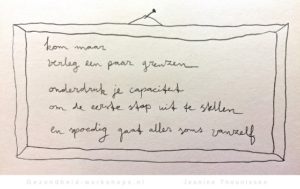 kom maar
verleg een paar grenzen
onderdruk je capaciteit
om de eerste stap uit te stellen
en spoedig gaat alles soms vanzelf
Gezondheid-workshops.nl Jeanine Theunissen